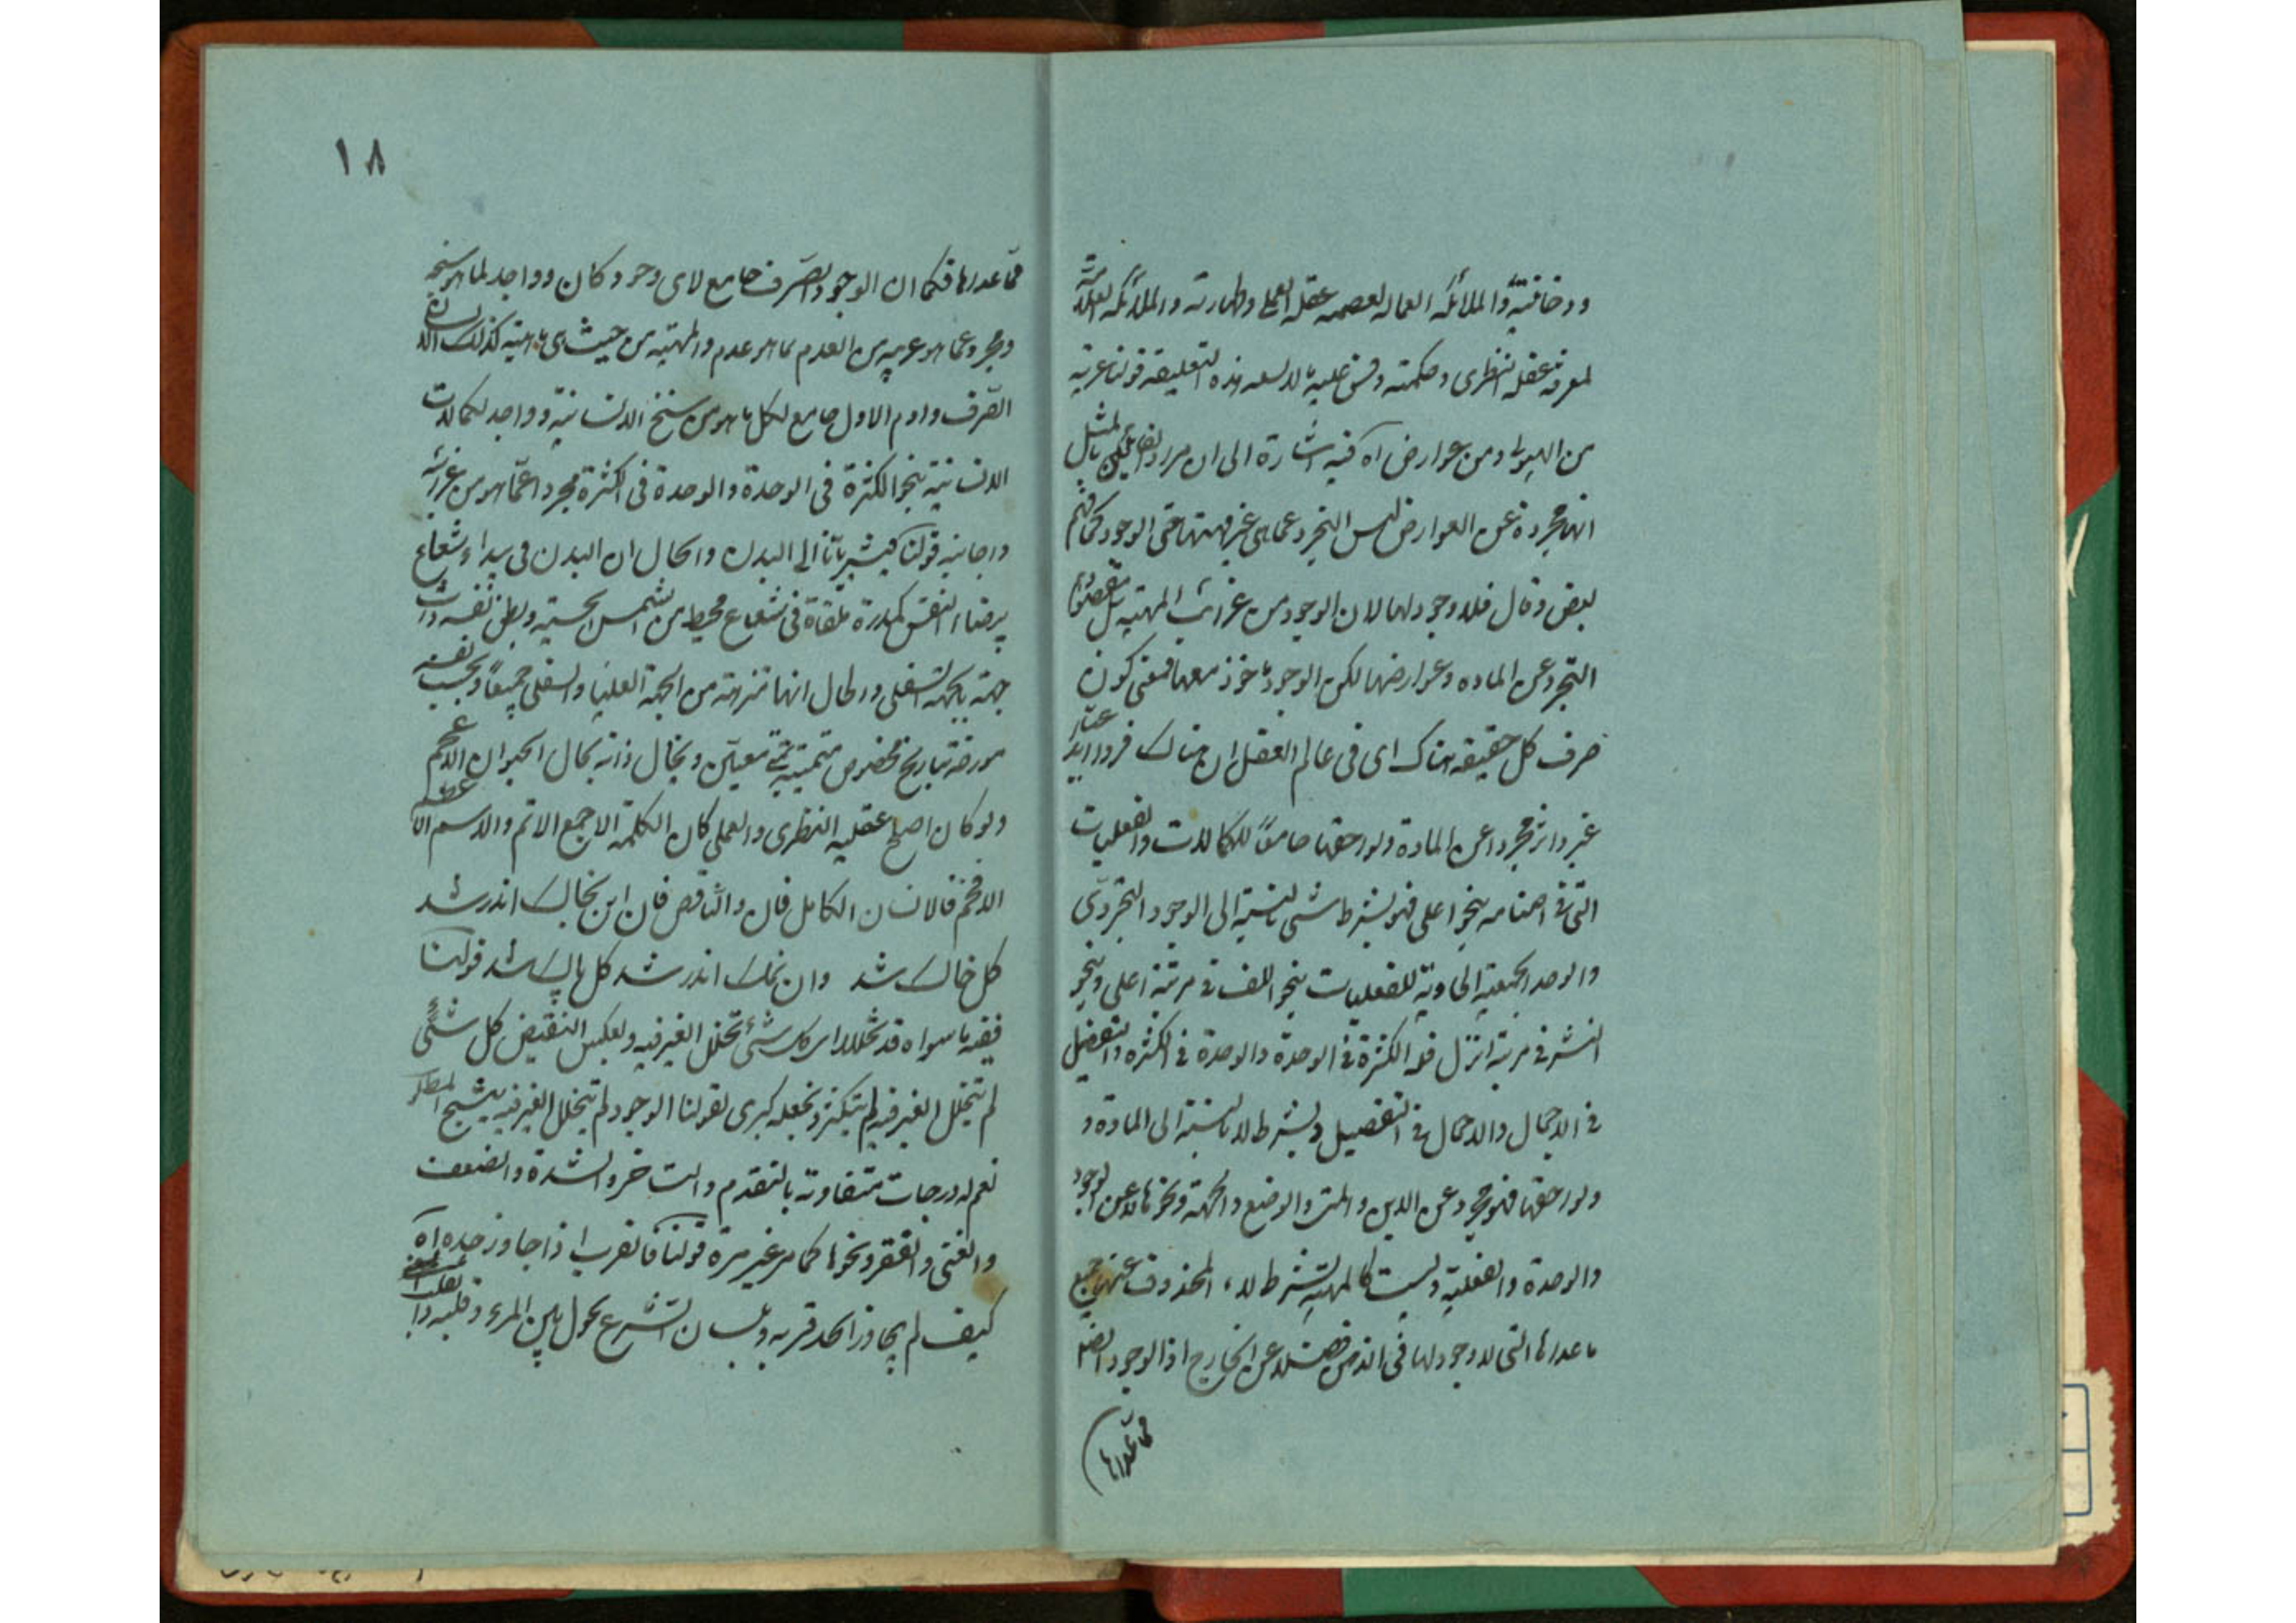 وروحانيته والملائكه العماله لعصمه عقله العملى وطهارته والملائكه العلامه
لمعرفه عقله النظرى وحكمته وقس عليه بالدسعه هذه التعليقه قولنا عرية
من الهيولى ومن عوارض اه فيه اشارة الى ان مراد القائلين بالمثل
انها مجردة عن العوارض ليس التجرد عماهى غير مهيتها حتى الوجود كما فهم
بعض وقال فلا وجود لها لان الوجود من غرائب المهيه بل مقصودهم
التجرد عن الماده وعوارضها لكن الوجود ماخوذ معها فمعنى كون
صرف كل حقيقه هناك اى فى عالم العقل ان هناك فردا ابداعيا
غير داثر مجردا عن المادة ولواحقها جامعا للكمالات والفعليات
التى فى اصنامه بنحو اعلى فهو بشرط شئ بالنسبة الى الوجود التجردى
والوحدة الجمعية الحاوية للفعليات بنحو اللف فى مرتبة اعلى وبنحو
النشر فى مرتبة انزل فله الكثرة فى الوحدة والوحدة فى الكثره والتفصيل
فى الاجمال والاجمال فى التفصيل وبشرط لا بالنسبة الى المادة و
ولواحقها فهو مجرد عن الاين والمتى والوضع والجهة ونحوها لا عن الوجود
والوحدة والفعلية وليست كالمهية بشرط لا المحذوف عنها جميع
ماعداها التى لا وجود لها فى الذهن فضلا عن الخارج اذ الوجود ايضا
مما عداها
١٨
مما عداها فكما ان الوجود الصرف جامع لاى وجود كان وواجد لما هو سنخه
ومجرد عما هو غريبه من العدم بما هو عدم والمهية من حيث هى ماهية كذلك الانسان
الصرف وادم الاول جامع لكل ما هو من سنخ الانسانية وواجد لكمالات
الانسانية بنحو الكثرة فى الوحدة والوحدة فى الكثرة مجردا عما هو من غرائبه
واجانبه قولنا كيشير بانا الى البدن والحال ان البدن فى بيداء شعاع
بيضاء النفس كمدرة ملقاة فى شعاع محيط من الشمس الحسية ويظن نفسه ذات
جهة بالجهة السفلى والحال انها منزهة من الجهة العليا والسفلى جميعا ويحسب نفسه
مورخه بتاريخ مخصوص متمتية بمتى معين ويخال ذاته بحال الحيوان الاعجم
ولو كان اصلح عقليه النظرى والعملى كان الكلمة الاجمع الاتم والاسم الاعظم
الافخم فالانسان الكامل فان والناقص فان اين بخاك اندر شد
كل خاك شد وان نمك اندر شد كل پاك شد قولنا
فيقه ما سواه قد تخللا اى كل شئ تخلل الغير فيه وبعكس النقيض كل شئ
لم يتخلل الغير فيه لم يتكثر ونجعله كبرى لقولنا الوجود لم يتخلل الغير فيه ينتج المطلوب
نعم له درجات متفاوته بالتقدم والتاخر والشدة والضعف
والغنى والفقر ونحوها كما مر غير مرة قولنا فالقرب اذا جاوز حده اه
كيف لم يجاوز الحد قربه وبلسان الشرع يحول بين المرء وقلبه